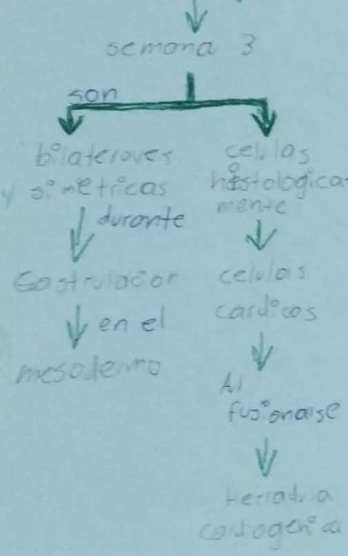 semana 3
son
bilaterores
y simétricas
durante
Gastrulación
en el
mesodermo
celulas
histologica-
mente
celulas
cardicos
Al
fusionarse
cardiogenica